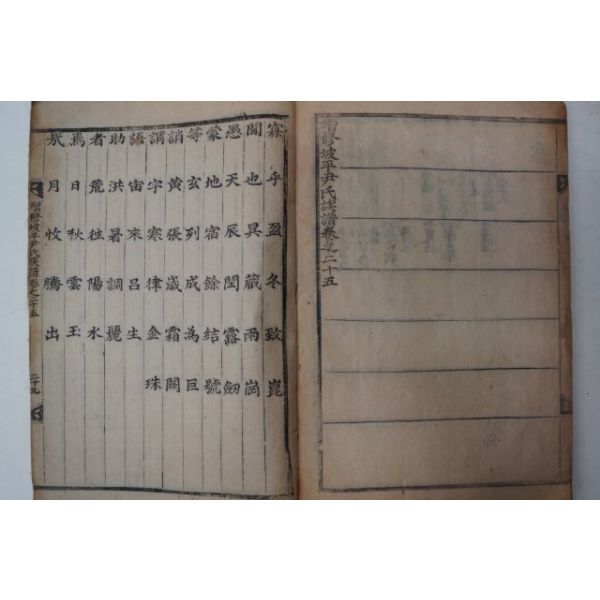 增修坡平尹氏族譜卷之二十五
寡聞愚蒙等誚謂語助者焉哉
乎也天地玄黃宇宙洪荒日月
盈昃辰宿列張寒來暑往秋收
冬藏閏餘成歲律呂調陽雲騰
致雨露結為霜金生麗水玉出
崑崗劒號巨闕珠
增修坡平尹氏族譜卷之二十五
二十九